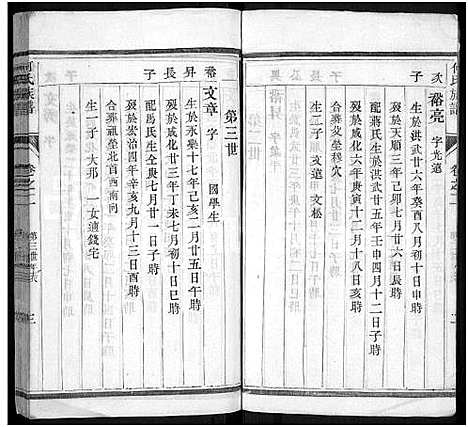 何氏族譜
卷之二
次子
裕亮 字光遠
生於洪武廿六年癸酉八月初十日申時
歿於天順三年己卯七月廿六日長時
配蔣氏生於洪武廿五年壬申四月十二日子時
歿於成化六年庚寅十二月十八日亥時
合葬父塋穆穴
生二子 文遠 文松
第三世
裕昇長子
文章 字 國學生
生於永樂十七年己亥二月廿五日午時
歿於成化廿三年丁未七月初十日巳時
配馮氏生全庚七月廿一日子時
歿於宏治四年辛亥九月十三日酉時
合葬祖塋北首西南向
生一子 大邦 一女適錢宅
何氏族譜
卷之二
第三世年系
三